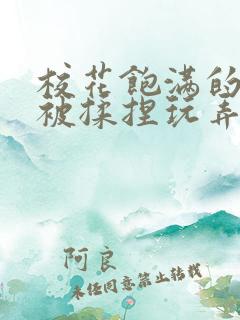 校花饱满的
被揉捏玩弄
阿良
未经同意禁止转载